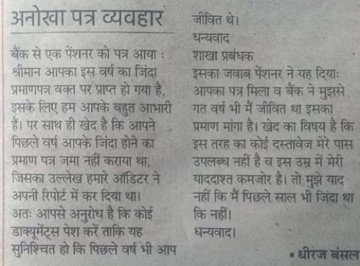 अनोखा पत्र व्यवहार
बैंक से एक पेंशनर को पत्र आया :
श्रीमान आपका इस वर्ष का जिंदा
प्रमाणपत्र वक्त पर प्राप्त हो गया है,
इसके लिए हम आपके बहुत आभारी
हैं। पर साथ ही खेद है कि आपने
पिछले वर्ष आपके जिंदा होने का
प्रमाण पत्र जमा नहीं कराया था,
जिसका उल्लेख हमारे ऑडिटर ने
अपनी रिपोर्ट में कर दिया था।
अतः आपसे अनुरोध है कि कोई
डाक्यूमेंट्स पेश करें ताकि यह
सुनिश्चित हो कि पिछले वर्ष भी आप
जीवित थे।
धन्यवाद
शाखा प्रबंधक
इसका जवाब पेंशनर ने यह दियाः
आपका पत्र मिला व बैंक ने मुझसे
गत वर्ष भी मैं जीवित था इसका
प्रमाण मांगा है। खेद का विषय है कि
इस तरह का कोई दस्तावेज मेरे पास
उपलब्ध नहीं है व इस उम्र में मेरी
याददाश्त कमजोर है। तो मुझे याद
नहीं कि मैं पिछले साल भी जिंदा था
कि नहीं।
धन्यवाद।
• धीरज बंसल